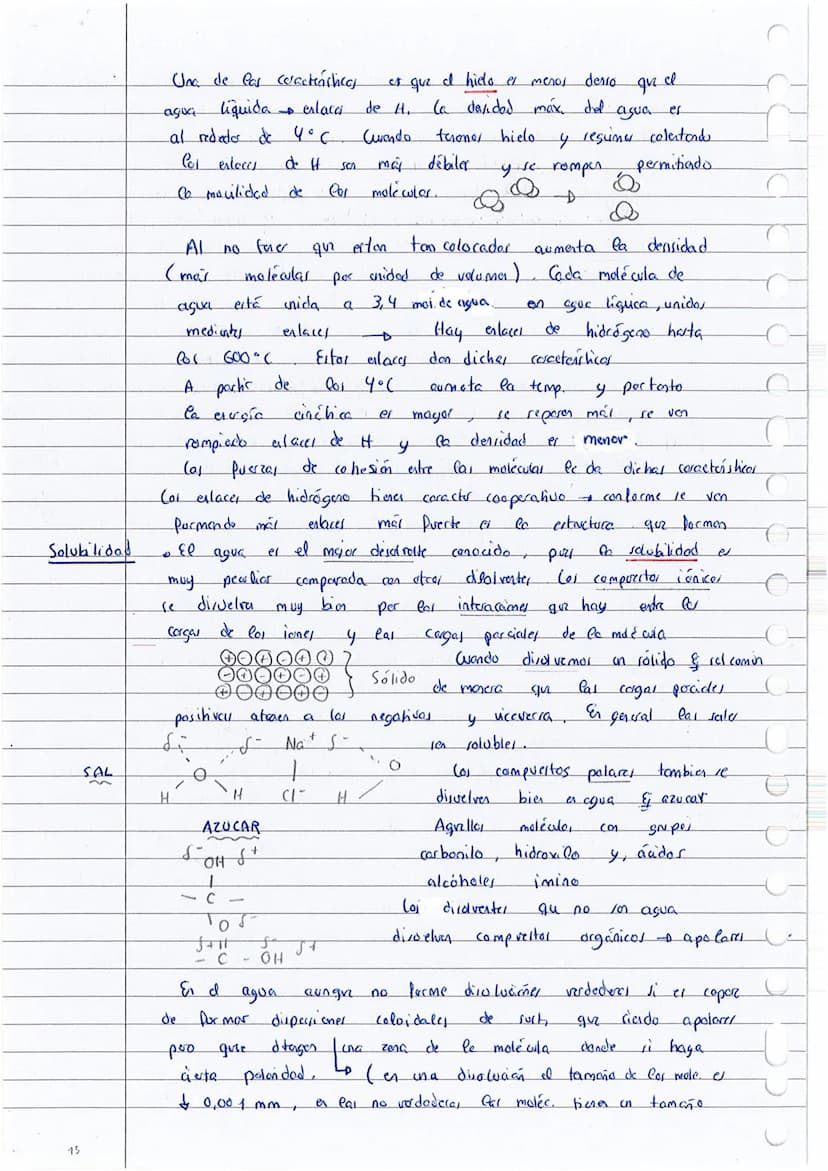 Una de las características es que el hielo es menos denso que el
agua líquida → enlaces de H. La densidad máx. del agua es
al rededor de 4°C. Cuando tenemos hielo y seguimos calentando
los enlaces de H son más débiles y se rompen, permitiendo
la movilidad de las moléculas.
Al no tener que estar tan colocadas aumenta la densidad
(más moléculas por unidad de volumen). Cada molécula de
agua está unida a 3,4 mol. de agua en agua líquida, unidas
mediantes enlaces → Hay enlaces de hidrógeno hasta
los 600°C. Estos enlaces dan dichas características
A partir de los 4°C aumenta la temp. y por tanto
la energía cinética es mayor, se separan más, se van
rompiendo enlaces de H y la densidad es menor.
Las fuerzas de cohesión entre las moléculas le da dichas características
Los enlaces de hidrógeno tienen caracter cooperativo → conforme se van
formando más enlaces más fuerte es la estructura que forman
Solubilidad
• El agua es el mejor disolvente conocido, pues la solubilidad es
muy peculiar comparada con otros disolventes. Los compuestos iónicos
se disuelven muy bien por las interacciones que hay entre las
cargas de los iones y las cargas parciales de la molécula
+ - + - + +
- + - + - +
+ - + - + -
Sólido
Cuando disolvemos un sólido Ej sal común
de manera que las cargas parciales
positivas atraen a las negativas y viceversa. En general las sales
son solubles.
SAL
δ- δ- Na+ δ-
O O
H H Cl- H
Los compuestos polares tambien se
disuelven bien en agua Ej azucar
AZUCAR
Aquellas moléculas con grupos
carbonilo, hidroxilo y, ácidos
alcoholes imino
δ- OH δ+
- C -
O δ-
δ+ δ- δ+
- C - OH
Los disolventes que no son agua
disuelven compuestos orgánicos → apolares
En el agua aunque no forme disoluciones verdaderas si es capaz
de formar dispersiones coloidales de sust, que siendo apolares
pero que tengan una zona de la molécula donde si haya
cierta polaridad. ↳ (en una disolución el tamaño de las mole. es
↓ 0,001 mm, en las no verdaderas las moléc. tienen un tamaño
15